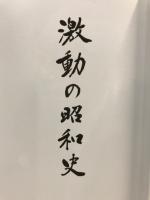 激動の昭和史